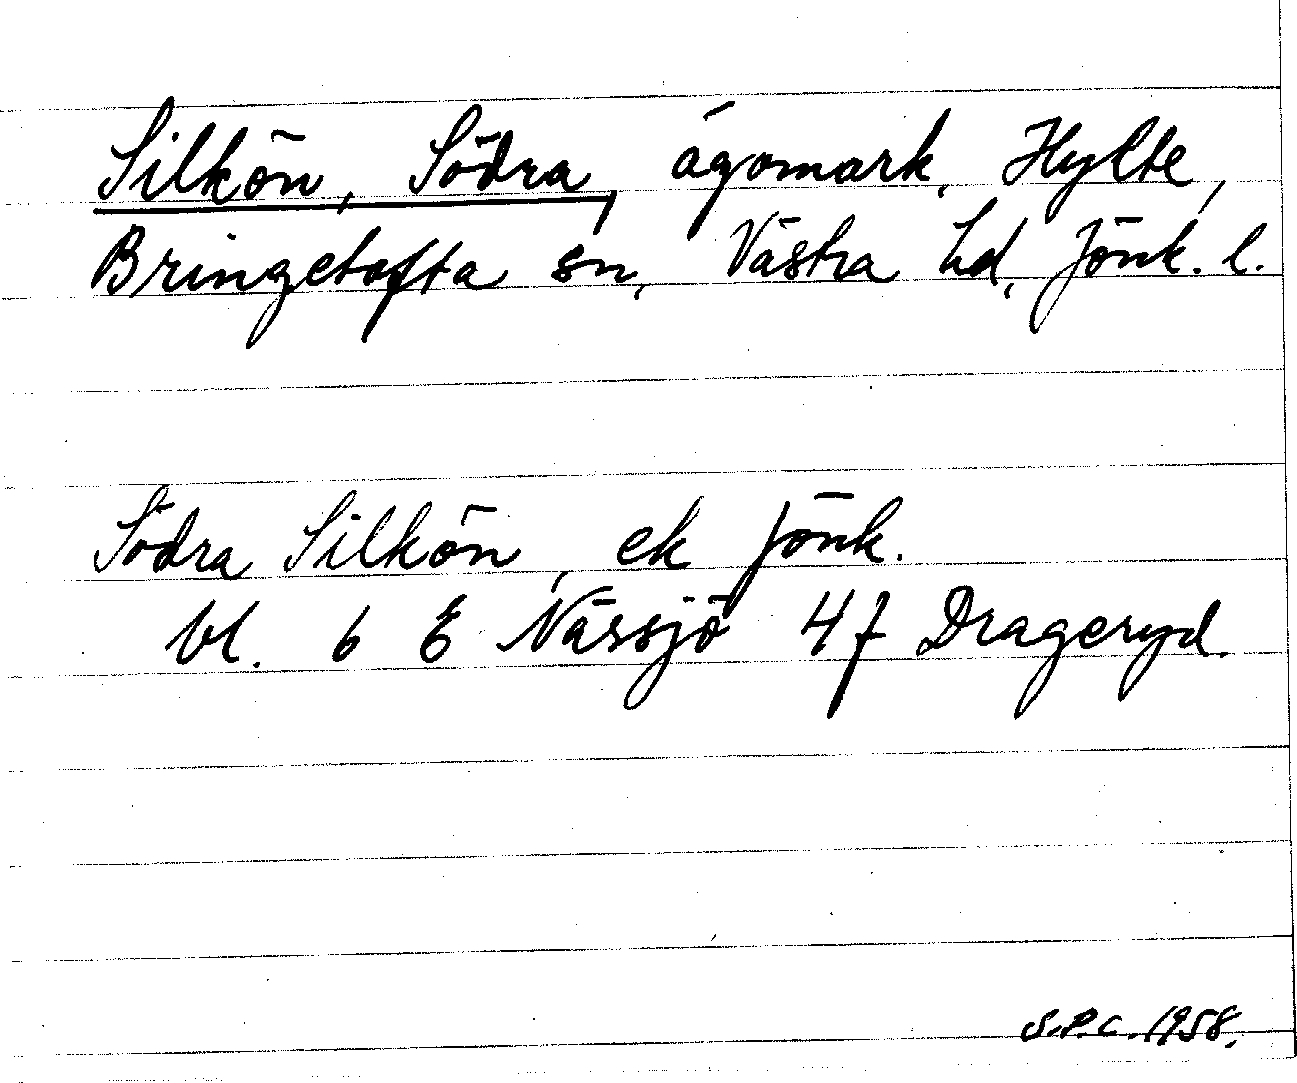 Silkön, Södra, ägomark, Hylte,
Bringetofta sn, Västra hd, Jönk. l.
Södra Silkön, ek Jönk.
bl. 6 E Nässjö 4f Drageryd.
S.P.C. 1958.